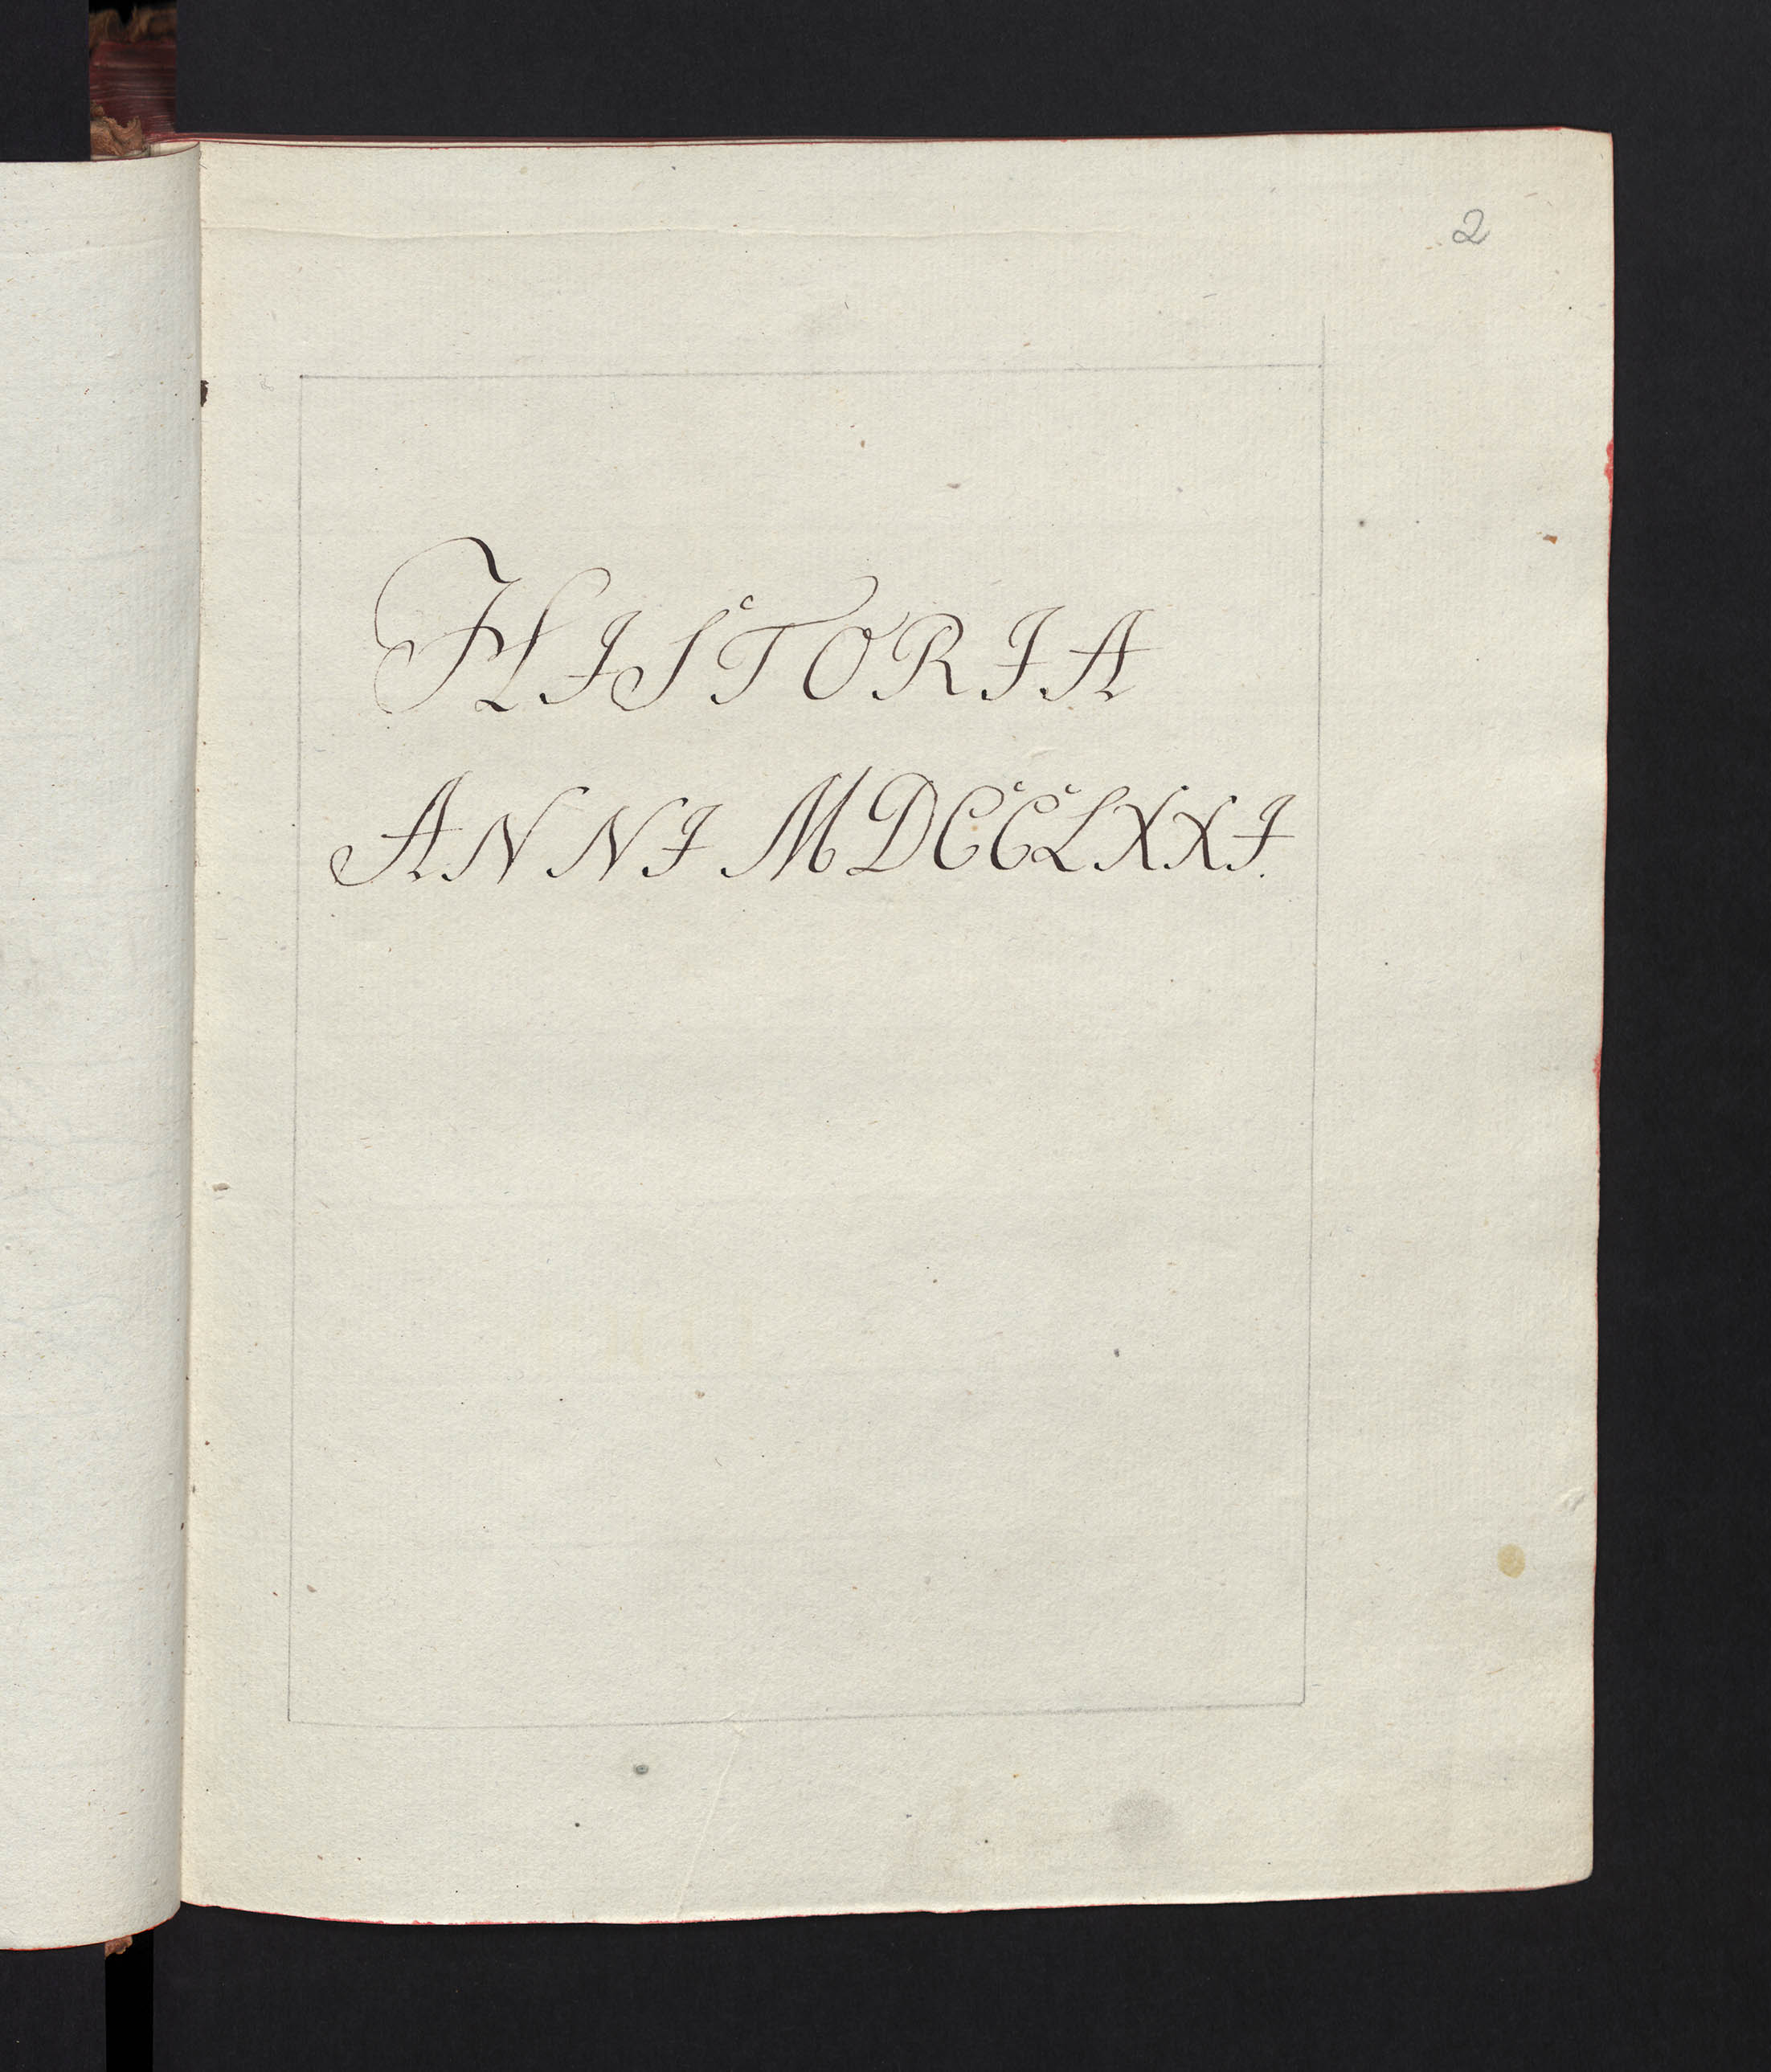 2
HISTORIA
ANNI MDCCLXXI.